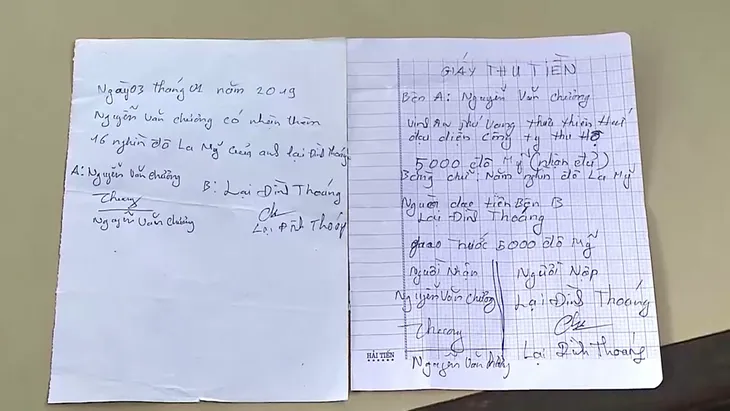 Ngày 03 tháng 01 năm 2019
Nguyễn Văn Chương có nhận thêm
16 nghìn đô La Mỹ của anh Lại Đình Thoáng
A: Nguyễn Văn Chương
B: Lại Đình Thoáng
Chương
Nguyễn Văn Chương
Lại Đình Thoáng
GIẤY THU TIỀN
Bên A: Nguyễn Văn Chương
Vinh An Phú Vang Thừa Thiên Huế
đại diện Công ty thu hộ
5000 đô Mỹ (nhận đủ)
Bằng chữ: Năm nghìn đô La Mỹ
Người đưa tiền Bên B
Lại Đình Thoáng
giao trước 5000 đô Mỹ
Người Nhận
Người Nộp
Nguyễn Văn Chương
Lại Đình Thoáng
Chương
Nguyễn Văn Chương
Lại Đình Thoáng
HẢI TIẾN